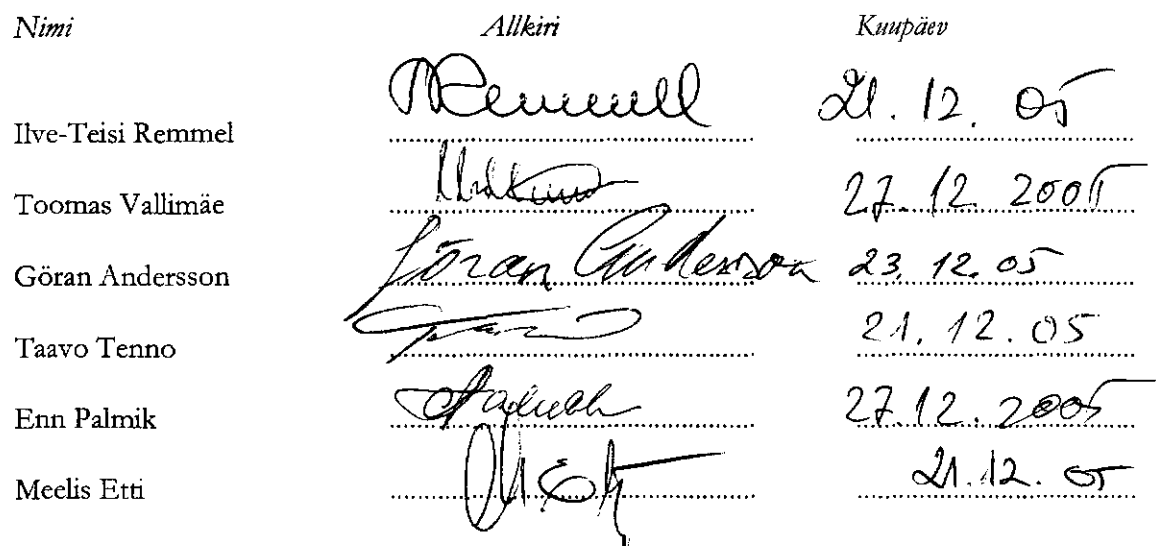 Nimi Allkiri Kuupäev
Ilve-Teisi Remmel Remmel 21. 12. 05
Toomas Vallimäe 27. 12 2005
Göran Andersson Göran Andersson 23. 12. 05
Taavo Tenno 21. 12. 05
Enn Palmik 27.12. 2005
Meelis Etti 21.12. 05